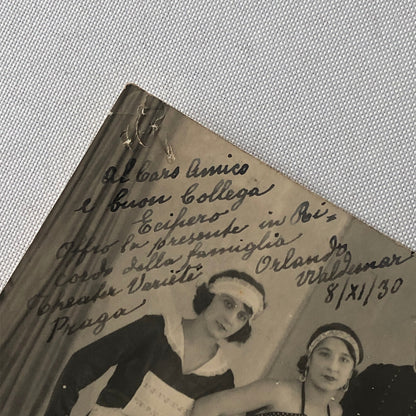 Al Caro Amico
e buon Collega
Ecifero
Offro la presente in Ri=
cordo della famiglia
Orlando
Waldemar
Theater Varieté
Praga
8/XI/30